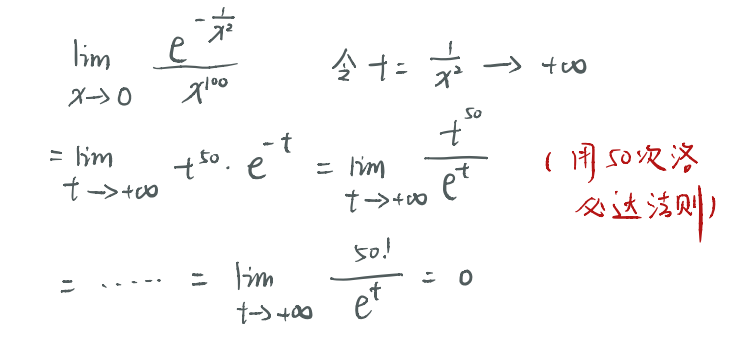 lim x→0 e^(-1/x²) / x^100 令 t = 1/x² → +∞
= lim t→+∞ t^50 · e^(-t) = lim t→+∞ t^50 / e^t (用50次洛
必达法则)
= ...... = lim t→+∞ 50! / e^t = 0